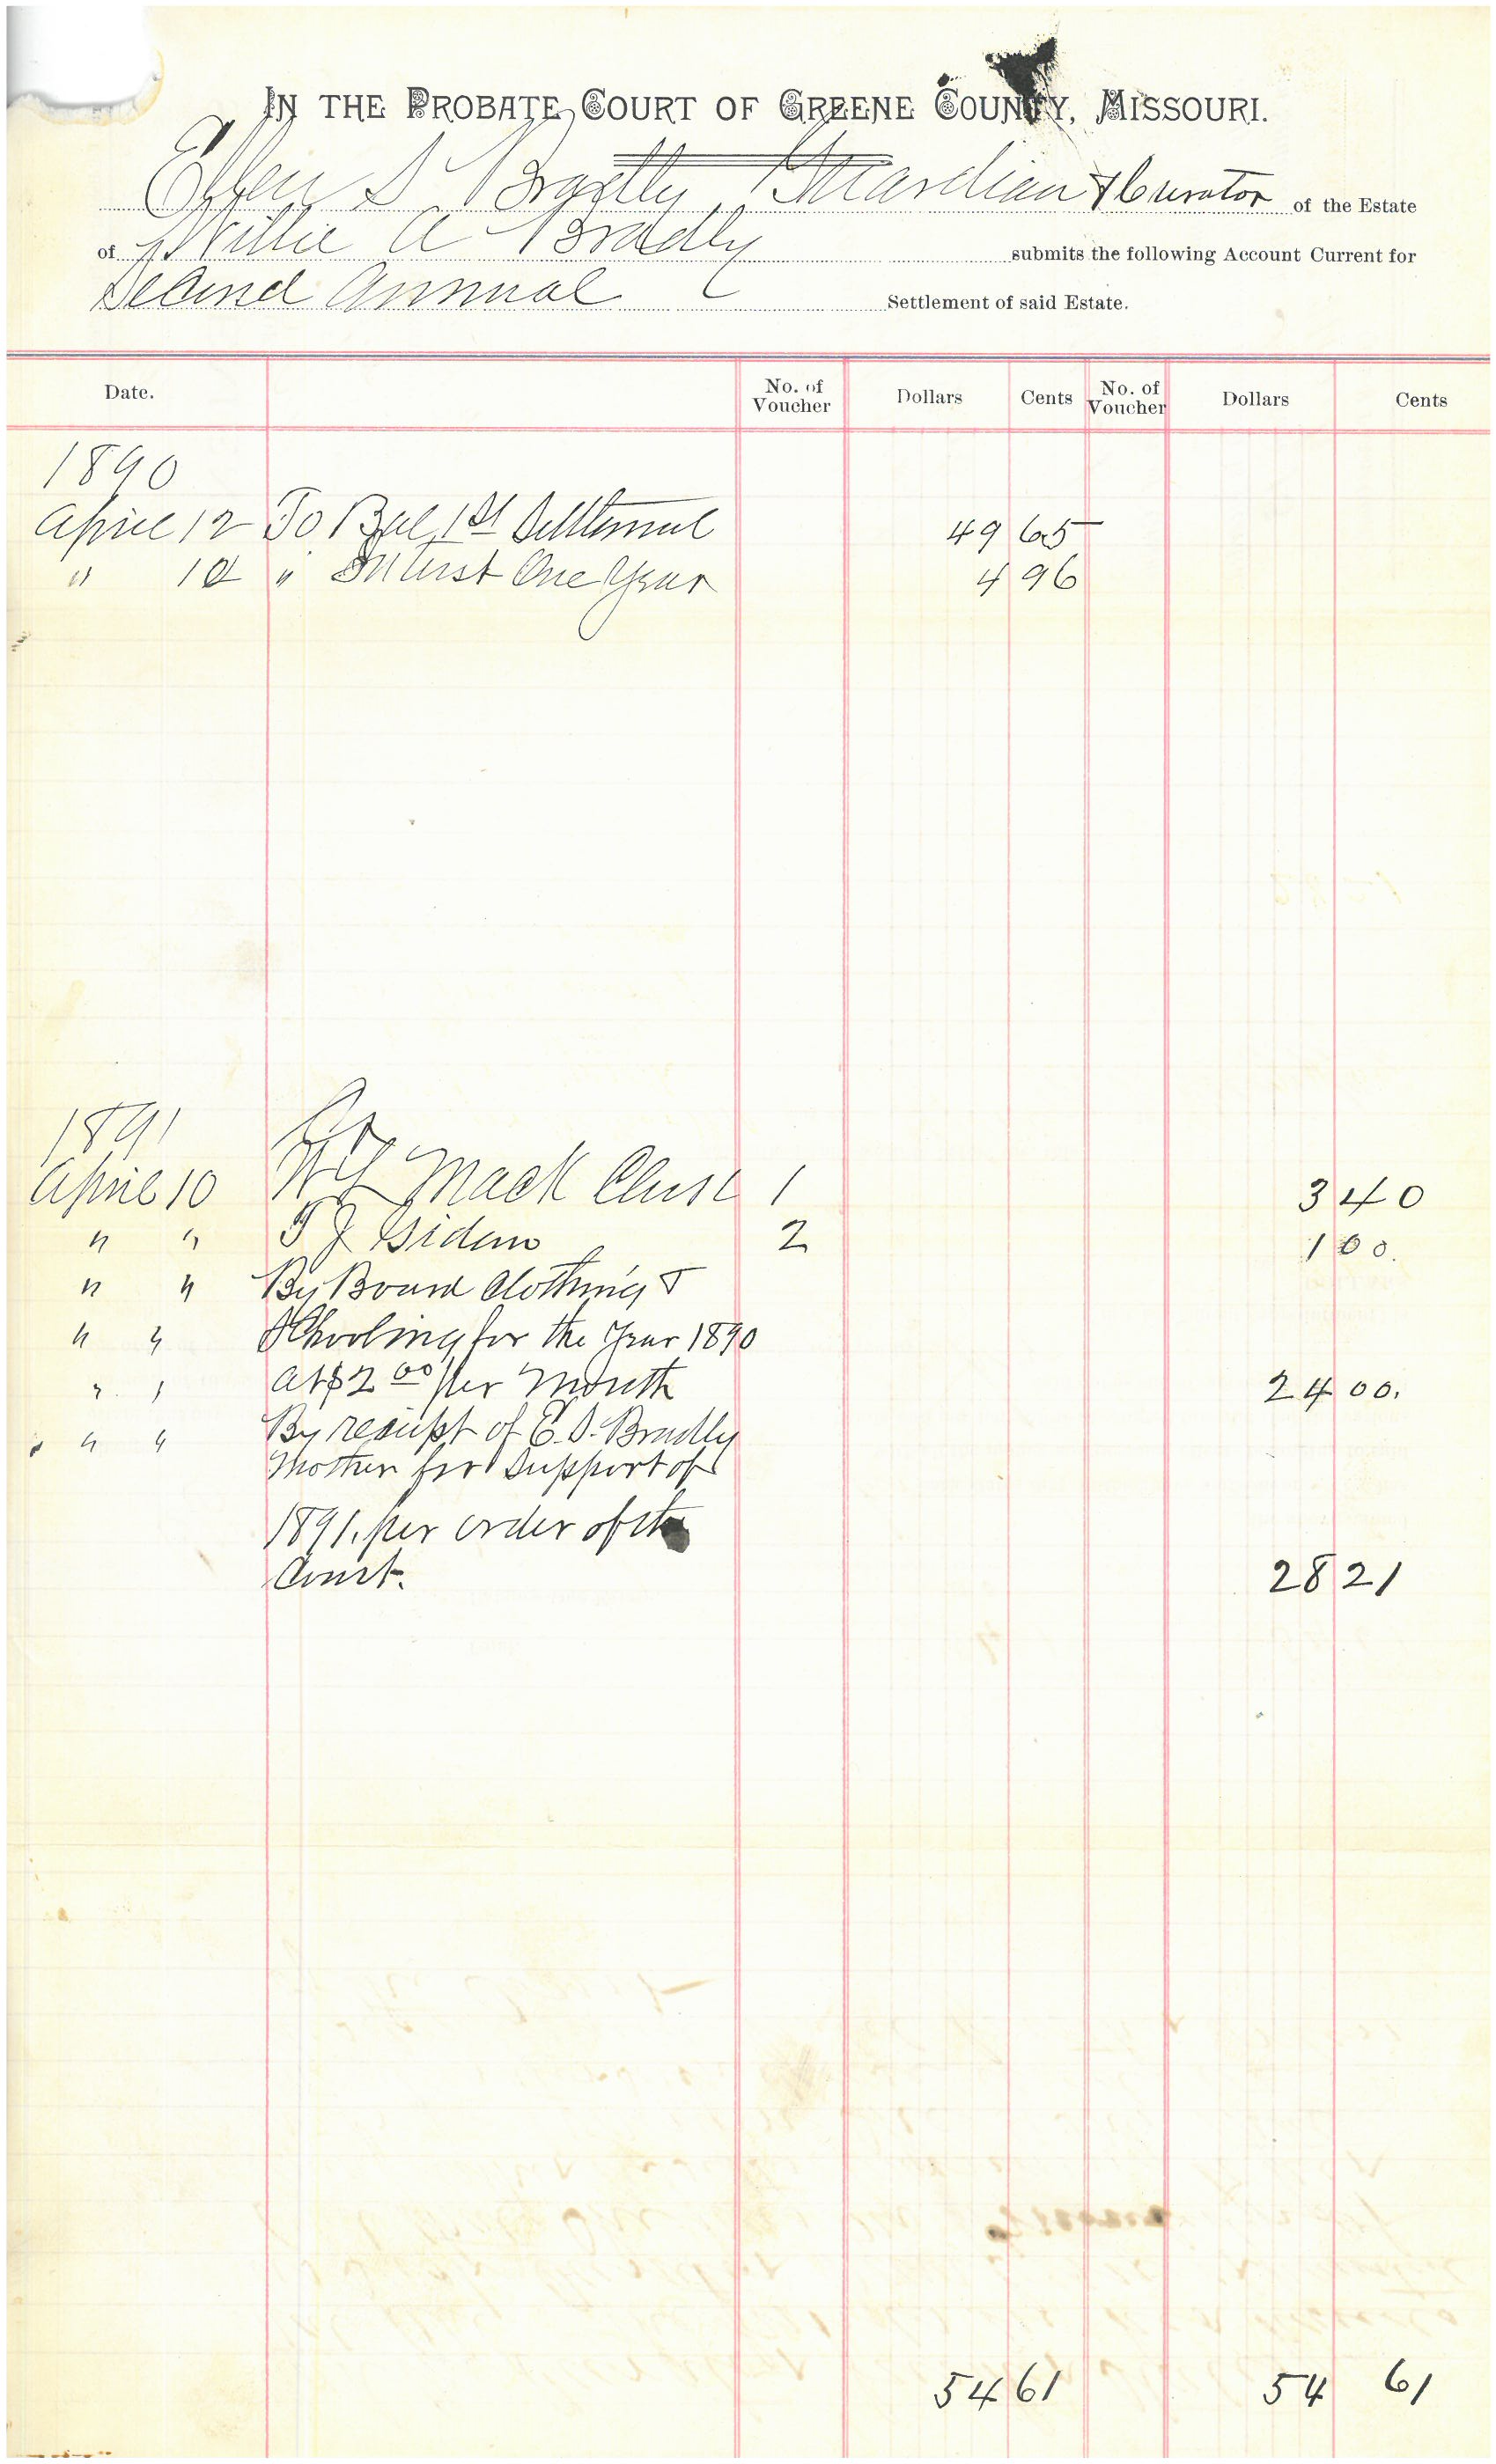 IN THE PROBATE COURT OF GREENE COUNTY, MISSOURI.
Ellen S Bradly Guardian & Curator of the Estate
of Willie A Bradly submits the following Account Current for
Second Annual Settlement of said Estate.
Date. No. of Voucher Dollars Cents No. of Voucher Dollars Cents
1890
April 12 To Bal 1st Settlement 49 65
" 12 " Intrest One Year 4 96
1891 Cr
April 10 Mack Cluse 1 3 40
" " T J Gideon 2 1 00.
" " By Board Clothing &
" " Schooling for the Year 1890
" " at $2 00 per Month 24 00.
" " By receipt of E. S. Bradly
Mother for support of
1891. per order of the
Court. 28 21
54 61 54 61